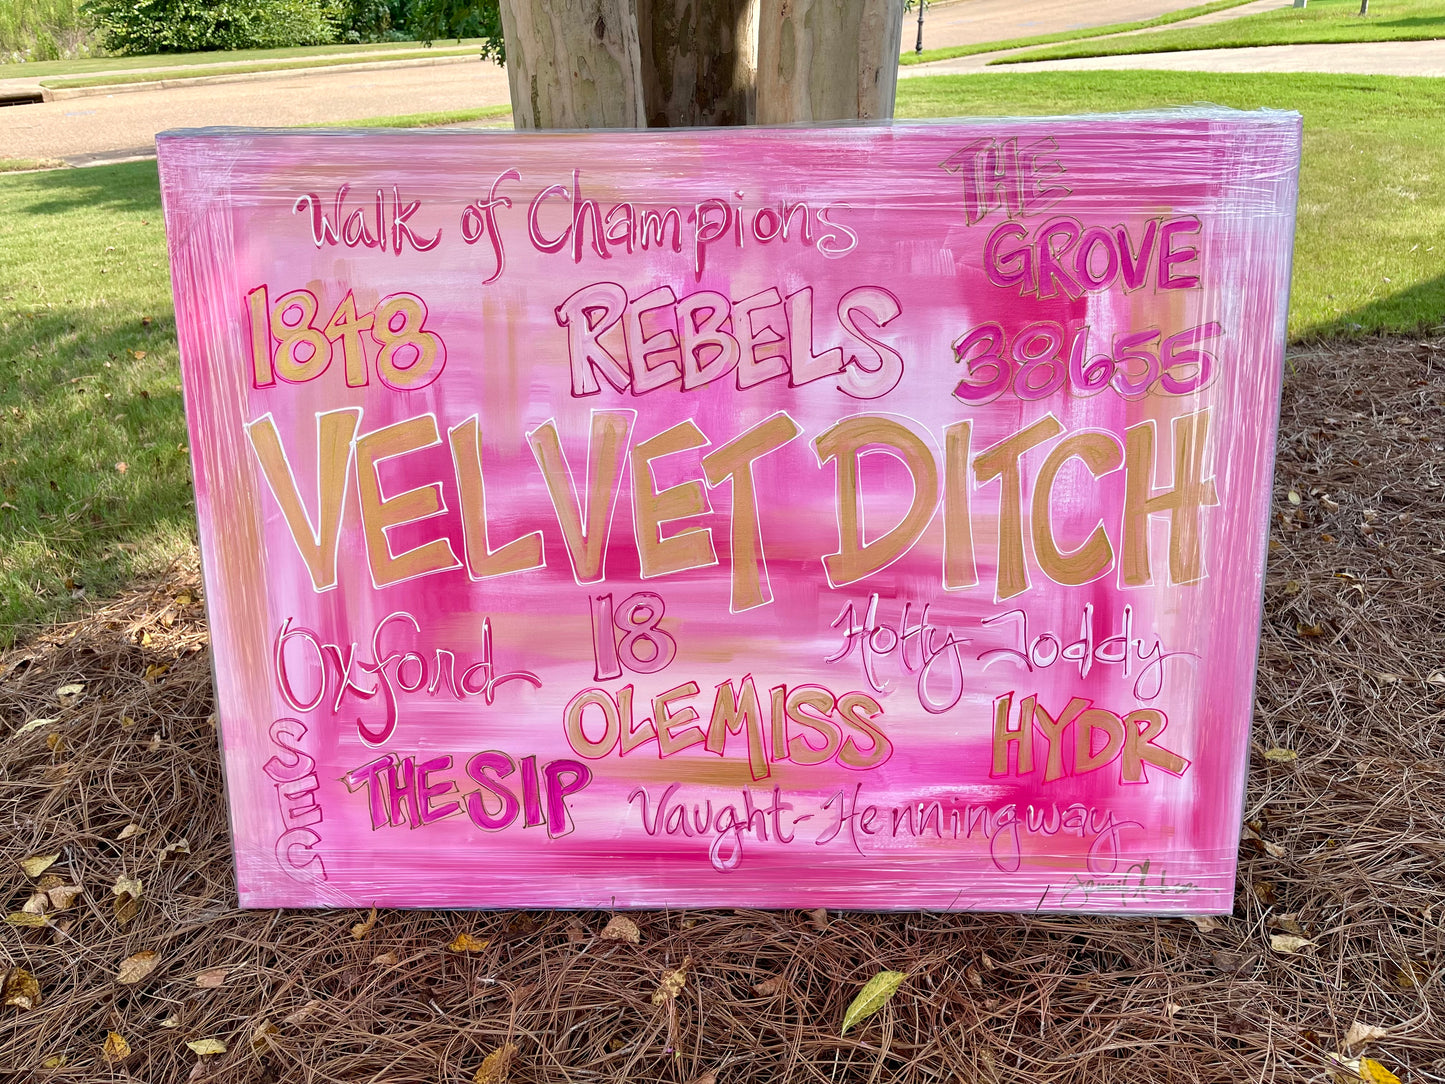 Walk of Champions
THE
GROVE
1848
REBELS
38655
VELVET DITCH
Oxford
18
Hotty Toddy
OLE MISS
HYDR
SEC
THE SIP
Vaught-Henningway